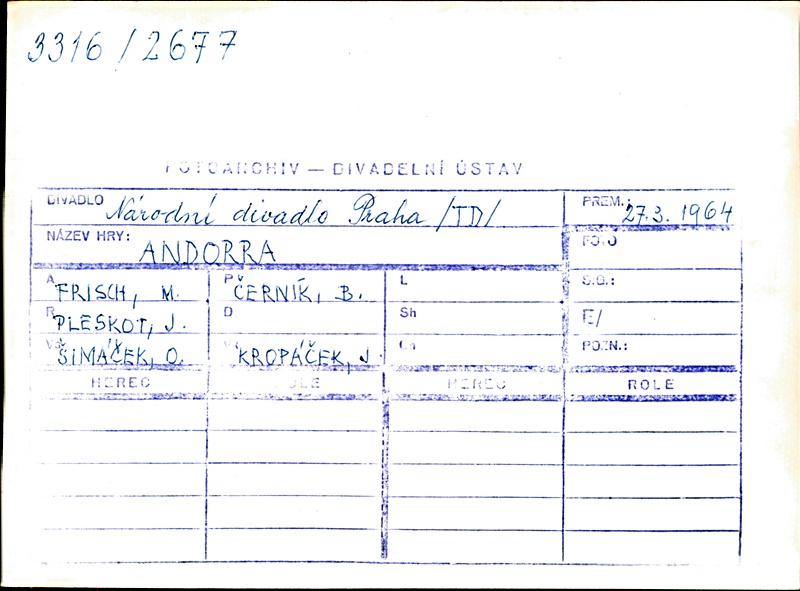 3316 / 2677
FOTOARCHIV — DIVADELNÍ ÚSTAV
DIVADLO Národní divadlo Praha /TD/ PREM.: 27.3. 1964
NÁZEV HRY: ANDORRA FOTO
A FRISCH, M. P ČERNÍK, B. L S.G.:
R PLESKOT, J. D Sh E/
ŠIMÁČEK, O. KROPÁČEK, J. POZN.:
HEREC ROLE HEREC ROLE